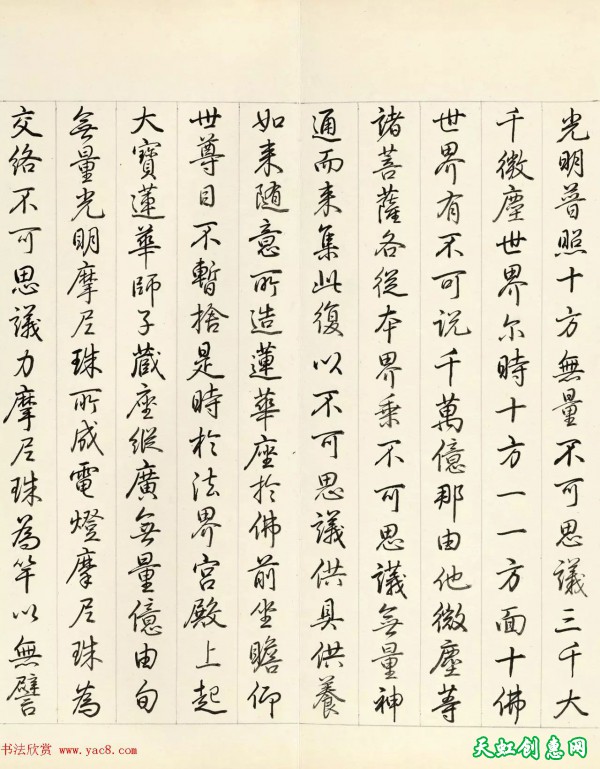 光明普照十方無量不可思議三千大
千微塵世界尔時十方一一方面十佛
世界有不可说千萬億那由他微塵等
諸菩薩各從本界乗不可思議無量神
通而来集此復以不可思議供具供養
如来随意所造蓮華座於佛前坐瞻仰
世尊目不暫捨是時於法界宮殿上起
大寶蓮華師子蔵座縱廣無量億由旬
無量光明摩尼珠所成電燈摩尼珠為
交絡不可思議力摩尼珠為竿以無譬
书法欣赏 www.yac8.com
天虹创惠网